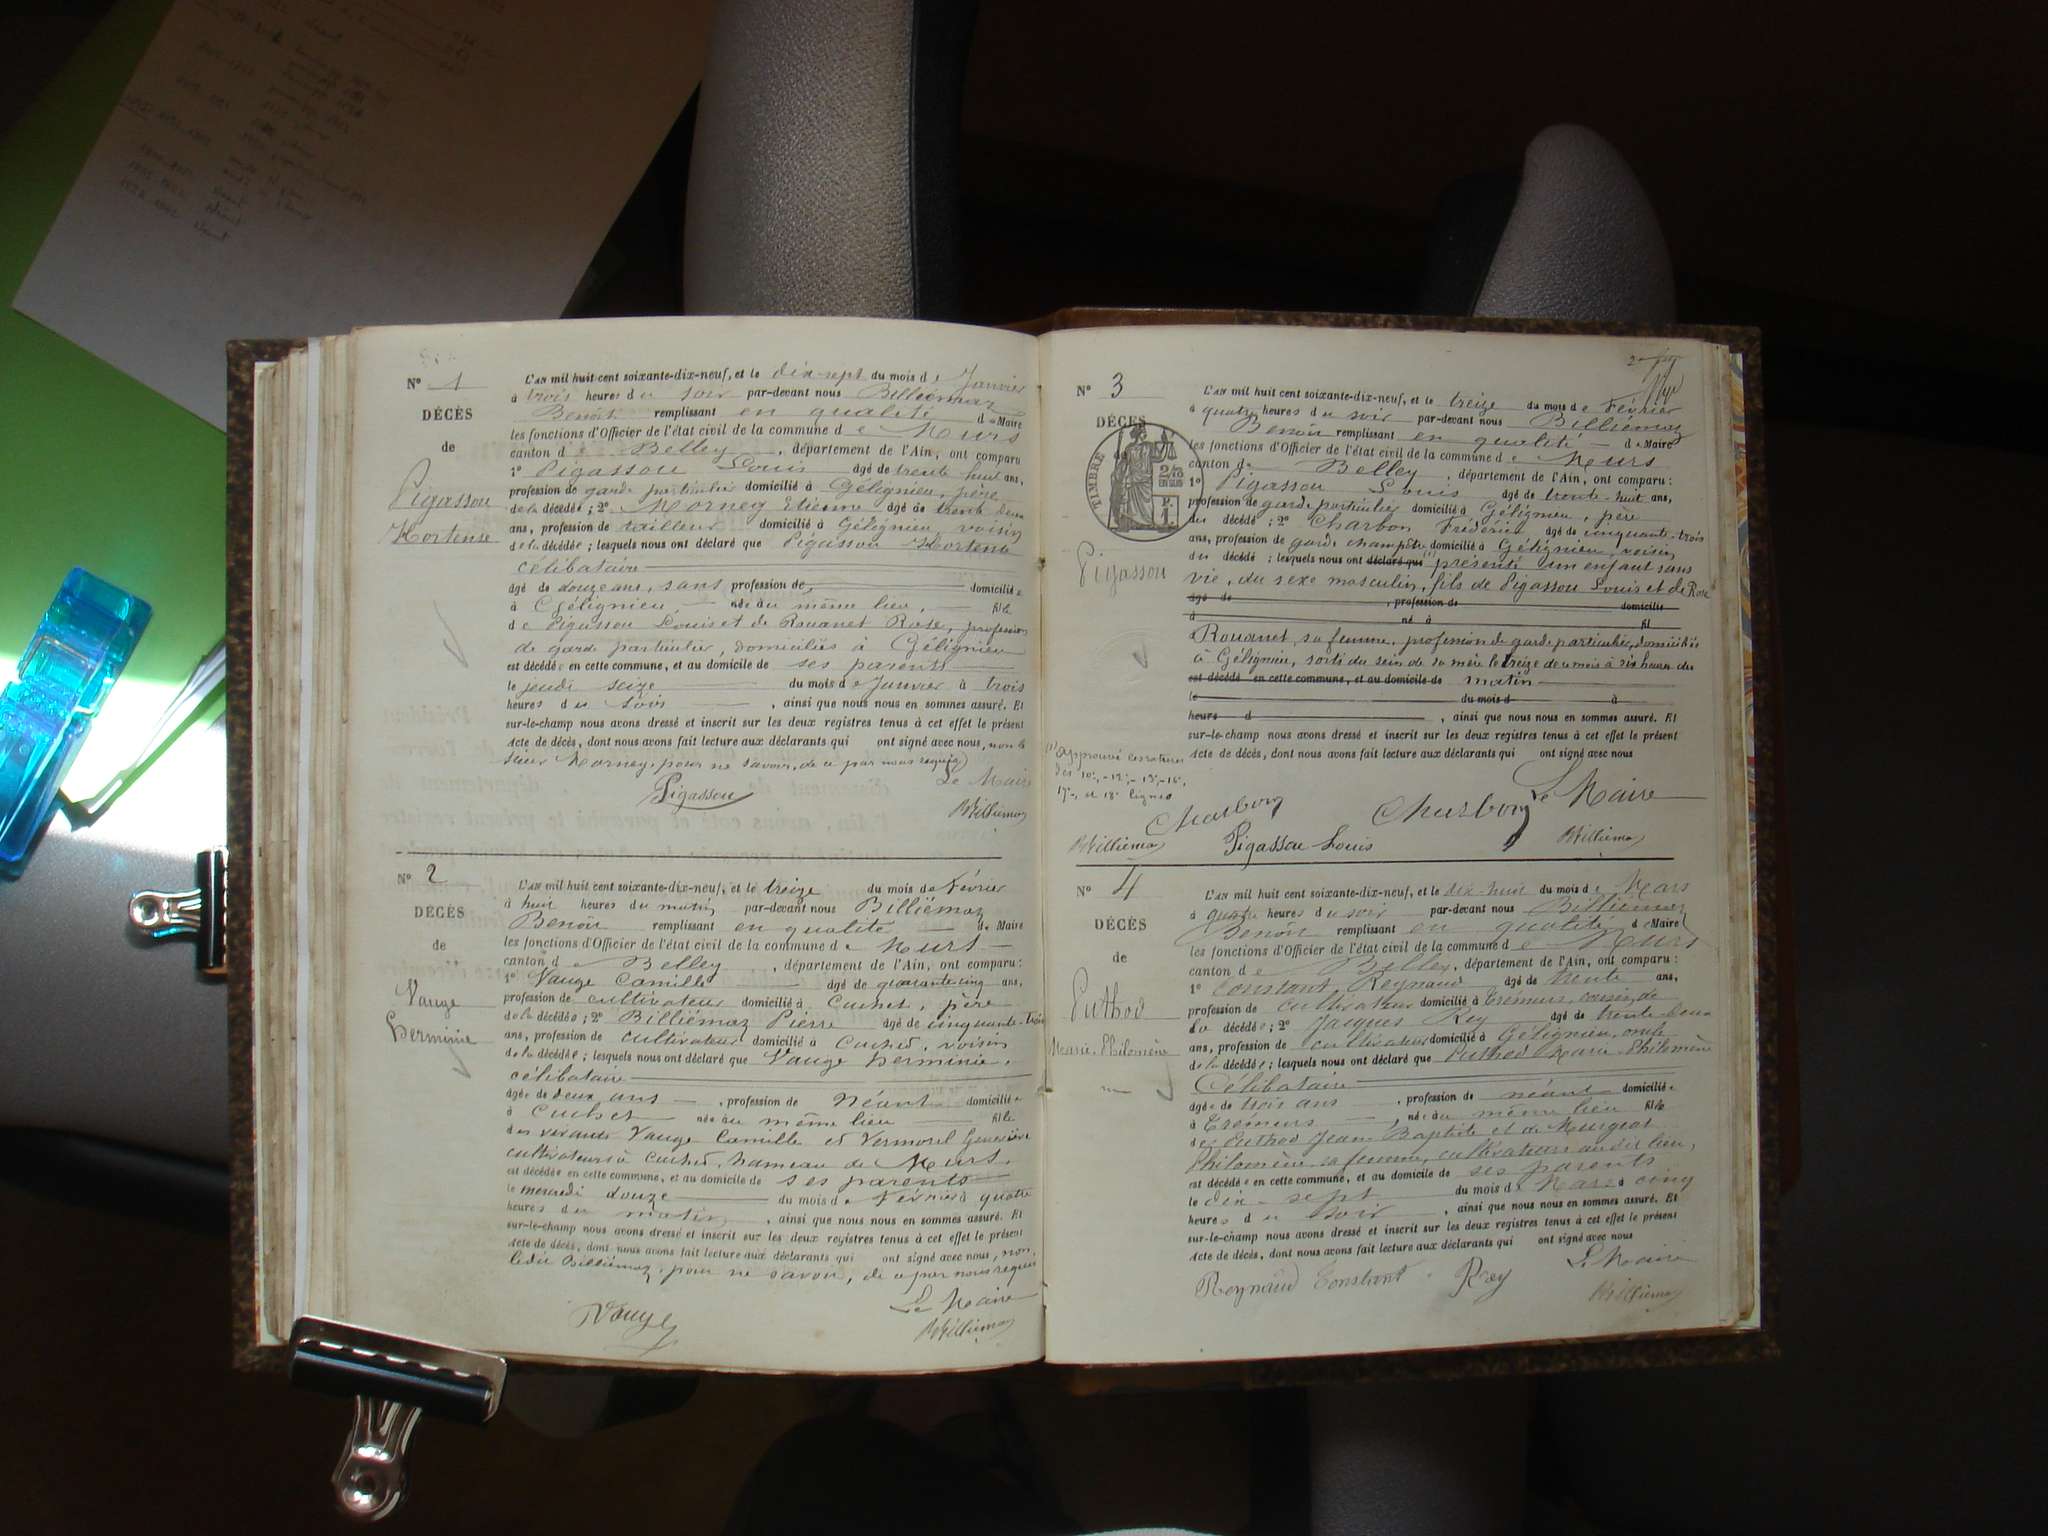 N° 1
DÉCÈS
de
Pigassou
Hortense
L'AN mil huit cent soixante-dix-neuf, et le dix-sept du mois de Janvier
à trois heures du soir par-devant nous Billiémaz
Benoît remplissant en qualité de Maire
les fonctions d'Officier de l'état civil de la commune de Murs
canton de Belley, département de l'Ain, ont comparu
1° Pigassou Louis âgé de trente huit ans,
profession de garde particulier domicilié à Gélignieu, père
de la décédée ; 2° Morney Etienne âgé de trente deux
ans, profession de tailleur domicilié à Gélignieu voisin
de la décédée ; lesquels nous ont déclaré que Pigassou Hortense
célibataire
âgé de douze ans, sans profession de domiciliée
à Gélignieu, née au même lieu, fille
de Pigassou Louis et de Rouanet Rose, profession
de garde particulier, domiciliés à Gélignieu
est décédée en cette commune, et au domicile de ses parents
le jeudi seize du mois de Janvier à trois
heures du soir, ainsi que nous nous en sommes assuré. Et
sur-le-champ nous avons dressé et inscrit sur les deux registres tenus à cet effet le présent
Acte de décès, dont nous avons fait lecture aux déclarants qui ont signé avec nous, non le
sieur Morney, pour ne savoir, de ce par nous requis
Le Maire
Pigassou
Billiémaz
N° 2
DÉCÈS
de
Vauge
Herminie
L'AN mil huit cent soixante-dix-neuf, et le treize du mois de Février
à huit heures du matin par-devant nous Billiémaz
Benoît remplissant en qualité de Maire
les fonctions d'Officier de l'état civil de la commune de Murs
canton de Belley, département de l'Ain, ont comparu :
1° Vauge Camille âgé de quarante cinq ans,
profession de cultivateur domicilié à Cuchet, père
de la décédée ; 2° Billiémaz Pierre âgé de cinquante-trois
ans, profession de cultivateur domicilié à Cuchet, voisin
de la décédée ; lesquels nous ont déclaré que Vauge Herminie,
célibataire
âgée de deux ans, profession de Néant domiciliée
à Cuchet née au même lieu fille
des vivants Vauge Camille et Vermorel Geneviève
cultivateurs à Cuchet, hameau de Murs,
est décédée en cette commune, et au domicile de ses parents
le mercredi douze du mois de Février à quatre
heures du matin, ainsi que nous nous en sommes assuré. Et
sur-le-champ nous avons dressé et inscrit sur les deux registres tenus à cet effet le présent
Acte de décès, dont nous avons fait lecture aux déclarants qui ont signé avec nous, non
ledit Billiémaz, pour ne savoir, de ce par nous requis
Le Maire
Vauge
Billiémaz
N° 3
DÉCÈS
TIMBRE
Pigassou
L'AN mil huit cent soixante-dix-neuf, et le treize du mois de Février
à quatre heures du soir par-devant nous Billiémaz
Benoît remplissant en qualité de Maire
les fonctions d'Officier de l'état civil de la commune de Murs
canton de Belley, département de l'Ain, ont comparu :
1° Pigassou Louis âgé de trente-huit ans,
profession de garde particulier domicilié à Gélignieu, père
du décédé ; 2° Charbon Frédéric âgé de cinquante-trois
ans, profession de garde champêtre domicilié à Gélignieu, voisin
du décédé ; lesquels nous ont déclaré que présenté un enfant sans
vie, du sexe masculin, fils de Pigassou Louis et de Rose
âgé de , profession de domicilié
à né à fil
Rouanet, sa femme, profession de garde particulier, domiciliés
à Gélignieu, sorti du sein de sa mère le treize de ce mois à six heures du
est décédé en cette commune, et au domicile de matin
le du mois d à
heure d , ainsi que nous nous en sommes assuré. Et
sur-le-champ nous avons dressé et inscrit sur les deux registres tenus à cet effet le présent
Acte de décès, dont nous avons fait lecture aux déclarants qui ont signé avec nous
(1) Approuvé les ratures
des 10e, 12e, 13e, 16e,
17e, et 18e lignes
Le Maire
Charbon Charbon
Billiémaz Pigassou Louis Billiémaz
N° 4
DÉCÈS
de
Puthod
Marie-Philomène
L'AN mil huit cent soixante-dix-neuf, et le dix-huit du mois de Mars
à quatre heures du soir par-devant nous Billiémaz
Benoît remplissant en qualité de Maire
les fonctions d'Officier de l'état civil de la commune de Murs
canton de Belley, département de l'Ain, ont comparu :
1° Constant Reynaud âgé de trente ans,
profession de cultivateur domicilié à Trémurs, cousin de
la décédée ; 2° Jacques Rey âgé de trente-deux
ans, profession de cultivateur domicilié à Gélignieu, oncle
de la décédée ; lesquels nous ont déclaré que Puthod Marie-Philomène
Célibataire
âgée de trois ans, profession de néant domiciliée
à Trémurs, née au même lieu fille
de Puthod Jean-Baptiste et de
Philomène, sa femme, cultivateurs au dit lieu,
est décédée en cette commune, et au domicile de ses parents
le dix-sept du mois de Mars à cinq
heures du soir, ainsi que nous nous en sommes assuré. Et
sur-le-champ nous avons dressé et inscrit sur les deux registres tenus à cet effet le présent
Acte de décès, dont nous avons fait lecture aux déclarants qui ont signé avec nous
Le Maire
Reynaud Constant Rey
Billiémaz